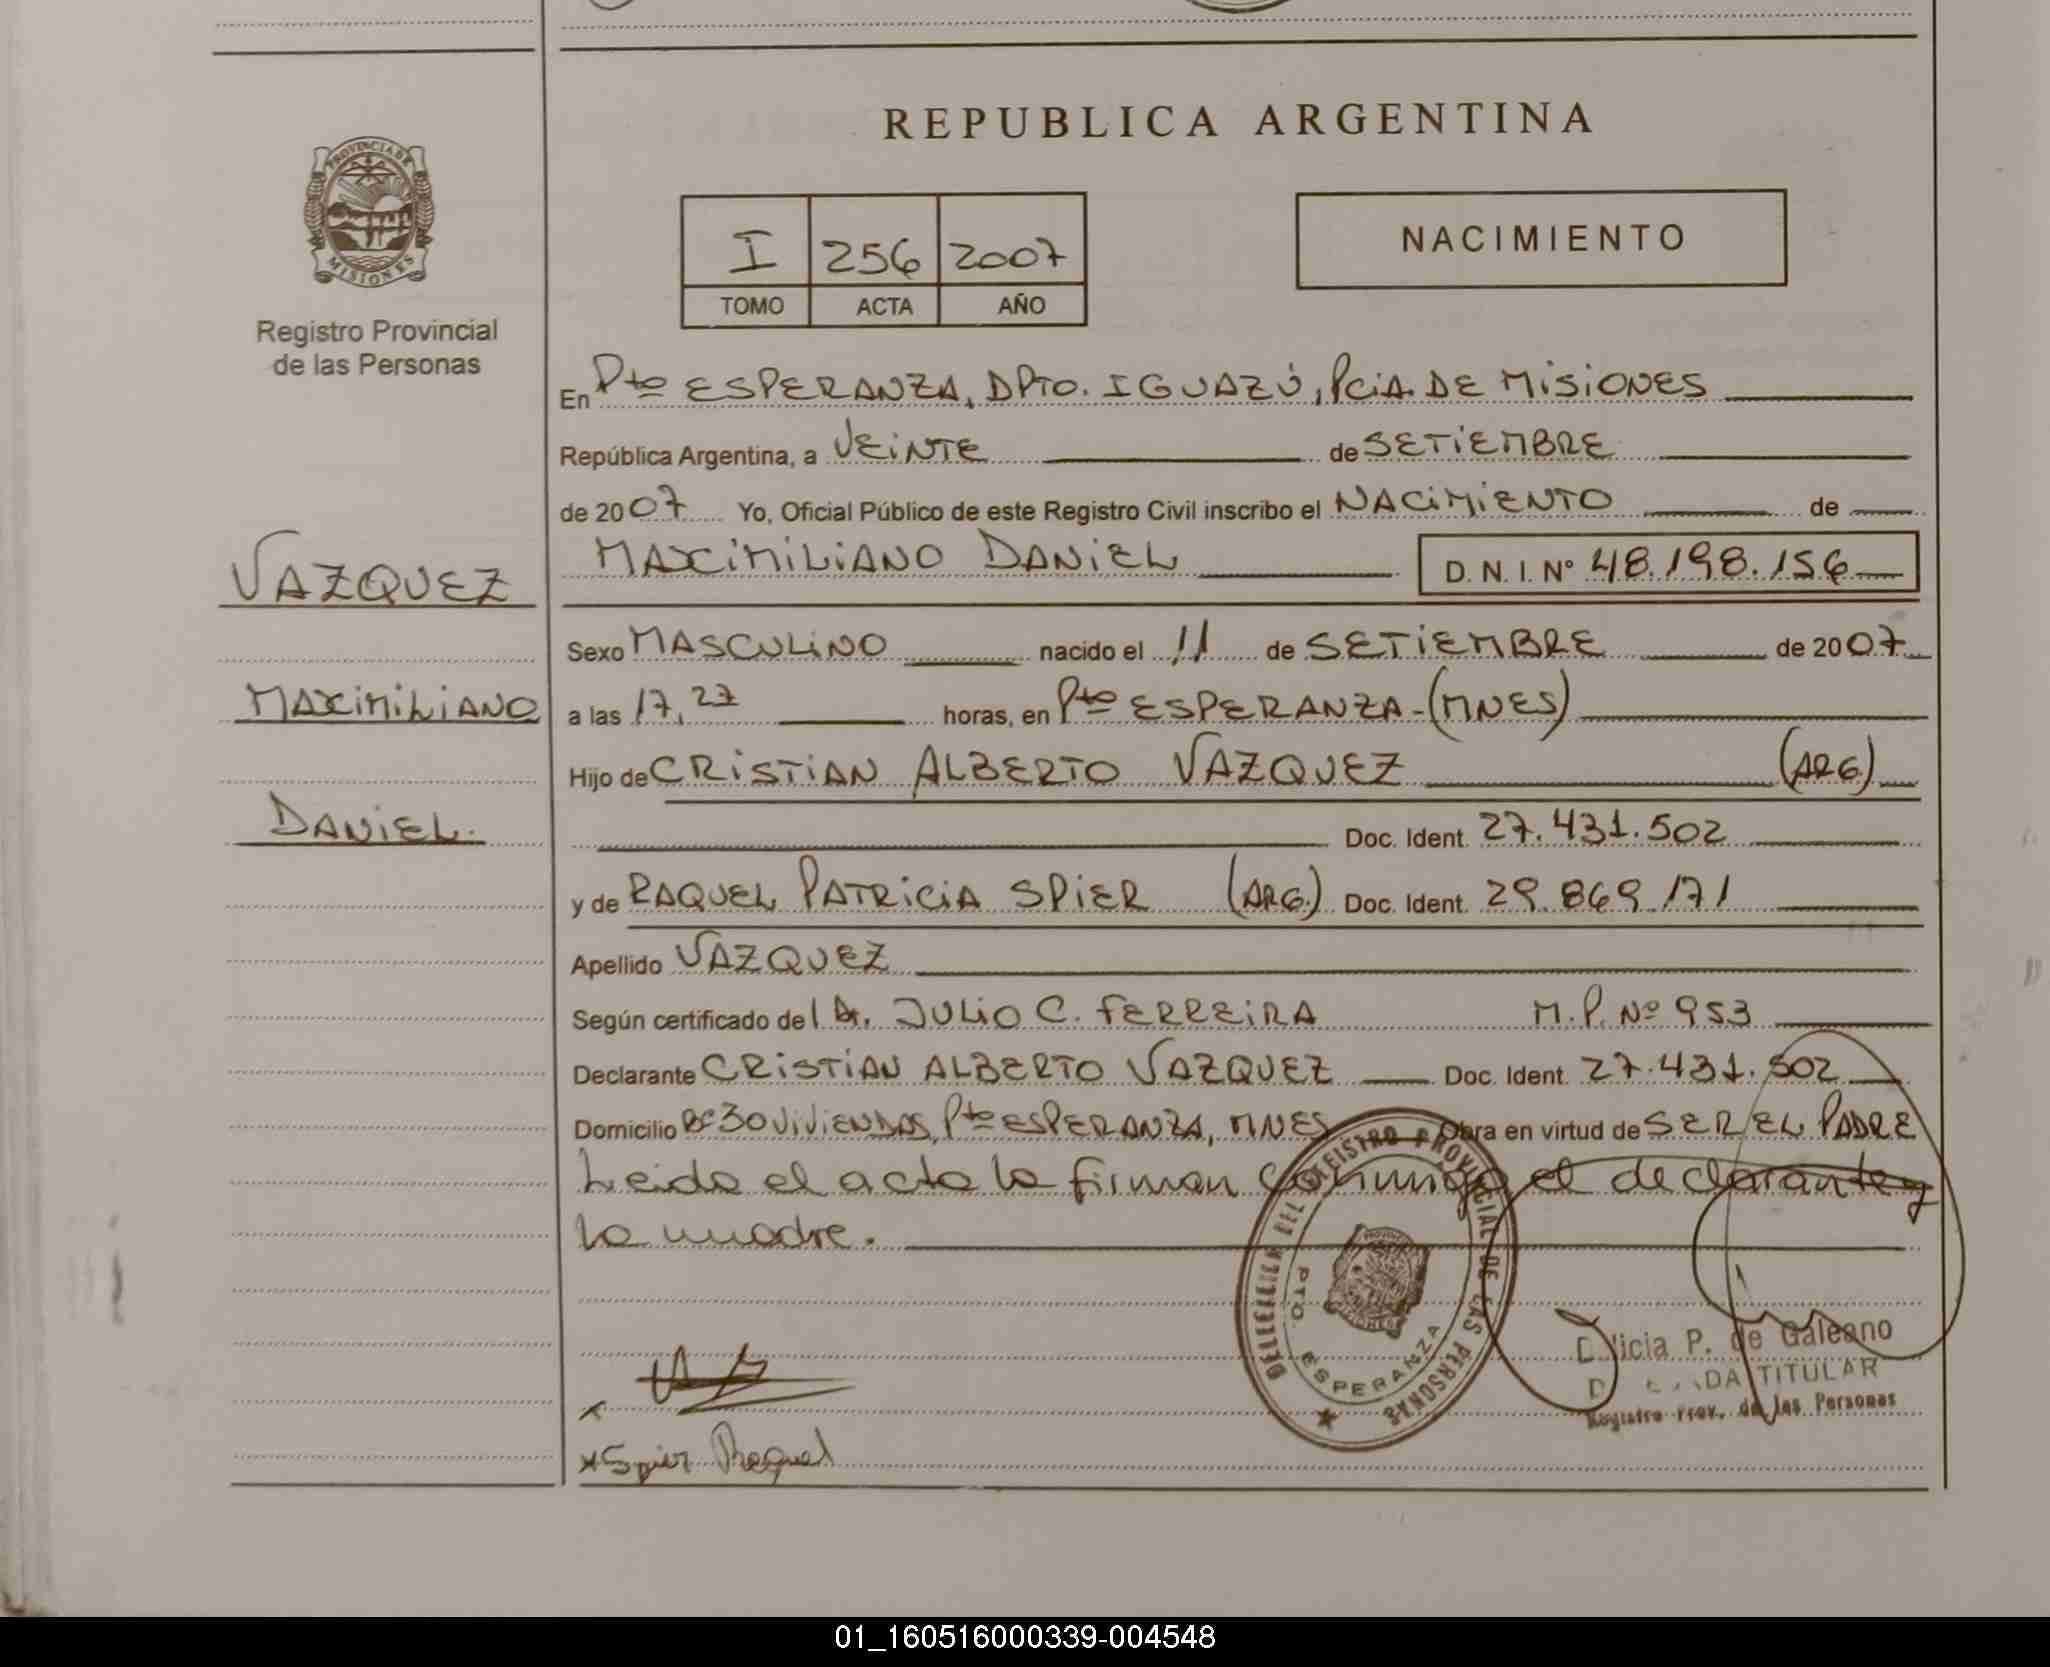 REPUBLICA ARGENTINA
PROVINCIA DE
MISIONES
Registro Provincial
de las Personas
I 256 2007
TOMO ACTA AÑO
NACIMIENTO
En Pto ESPERANZA, DPTO. IGUAZÚ, PCIA. DE MISIONES
República Argentina, a VEINTE de SETIEMBRE
de 2007 Yo, Oficial Público de este Registro Civil inscribo el NACIMIENTO de
MAXIMILIANO DANIEL D. N. I. N° 48.198.156
VAZQUEZ
MAXIMILIANO
DANIEL.
Sexo MASCULINO nacido el 11 de SETIEMBRE de 2007
a las 17,27 horas, en Pto ESPERANZA-(MNES)
Hijo de CRISTIAN ALBERTO VAZQUEZ (ARG)
Doc. Ident. 27.431.502
y de RAQUEL PATRICIA SPIER (ARG.) Doc. Ident. 29.869.171
Apellido VAZQUEZ
Según certificado del Dr. JULIO C. FERREIRA M.P. Nº 953
Declarante CRISTIAN ALBERTO VAZQUEZ Doc. Ident. 27.431.502
Domicilio Bº 30 VIVIENDAS, Pto ESPERANZA, MNES Obra en virtud de SER EL PADRE
Leida el acta la firman conmigo el declarante y
la madre.
DEL REGISTRO PROVINCIAL DE LAS PERSONAS
PTO. ESPERANZA
P. de Galeano
TITULAR
Registro Prov. de las Personas
x
x Spier Raquel
01_160516000339-004548